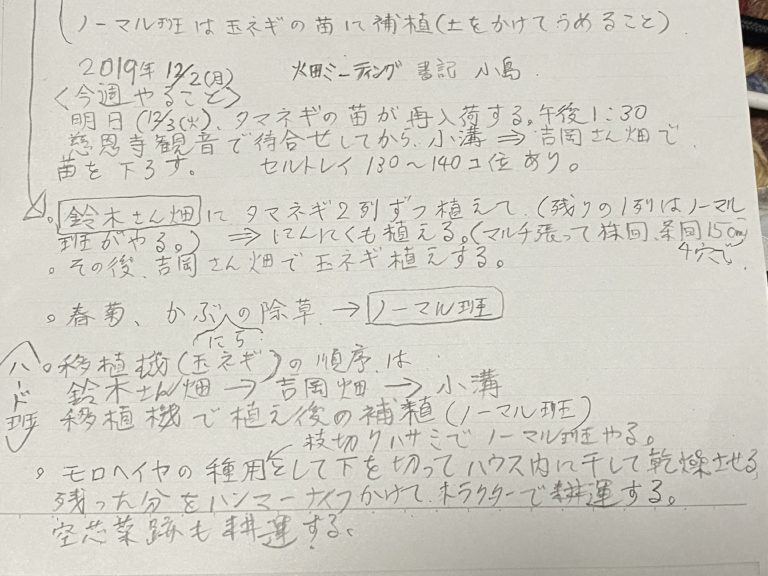 (ノーマル班は玉ネギの苗に補植(土をかけてうめること)
2019年 12/2(月) 火田ミーティング 書記 小島
<今週やること>
明日(12/3(火)、タマネギの苗が再入荷する。午後1:30
慈恩寺観音で待合せしてから、小溝⇒吉岡さん畑で
苗を下ろす。 セルトレイ 130～140コ位あり。
。鈴木さん畑にタマネギ2列ずつ植えて、(残りの1列はノーマル
班がやる。) ⇒にんにくも植える。(マルチ張って株間、条間15cm)
4穴で
。その後、吉岡さん畑で玉ネギ植えする。
。春菊、かぶの除草→ノーマル班
にら
ハード班
。移植機(玉ネギ)の順序は
鈴木さん畑→吉岡畑→小溝
移植機で植え後の補植(ノーマル班)
枝切りハサミでノーマル班やる。
。モロヘイヤの種用として下を切ってハウス内に干して乾燥させる
残った分をハンマーナイフかけて、トラクターで耕運する。
空芯菜跡も耕運する。